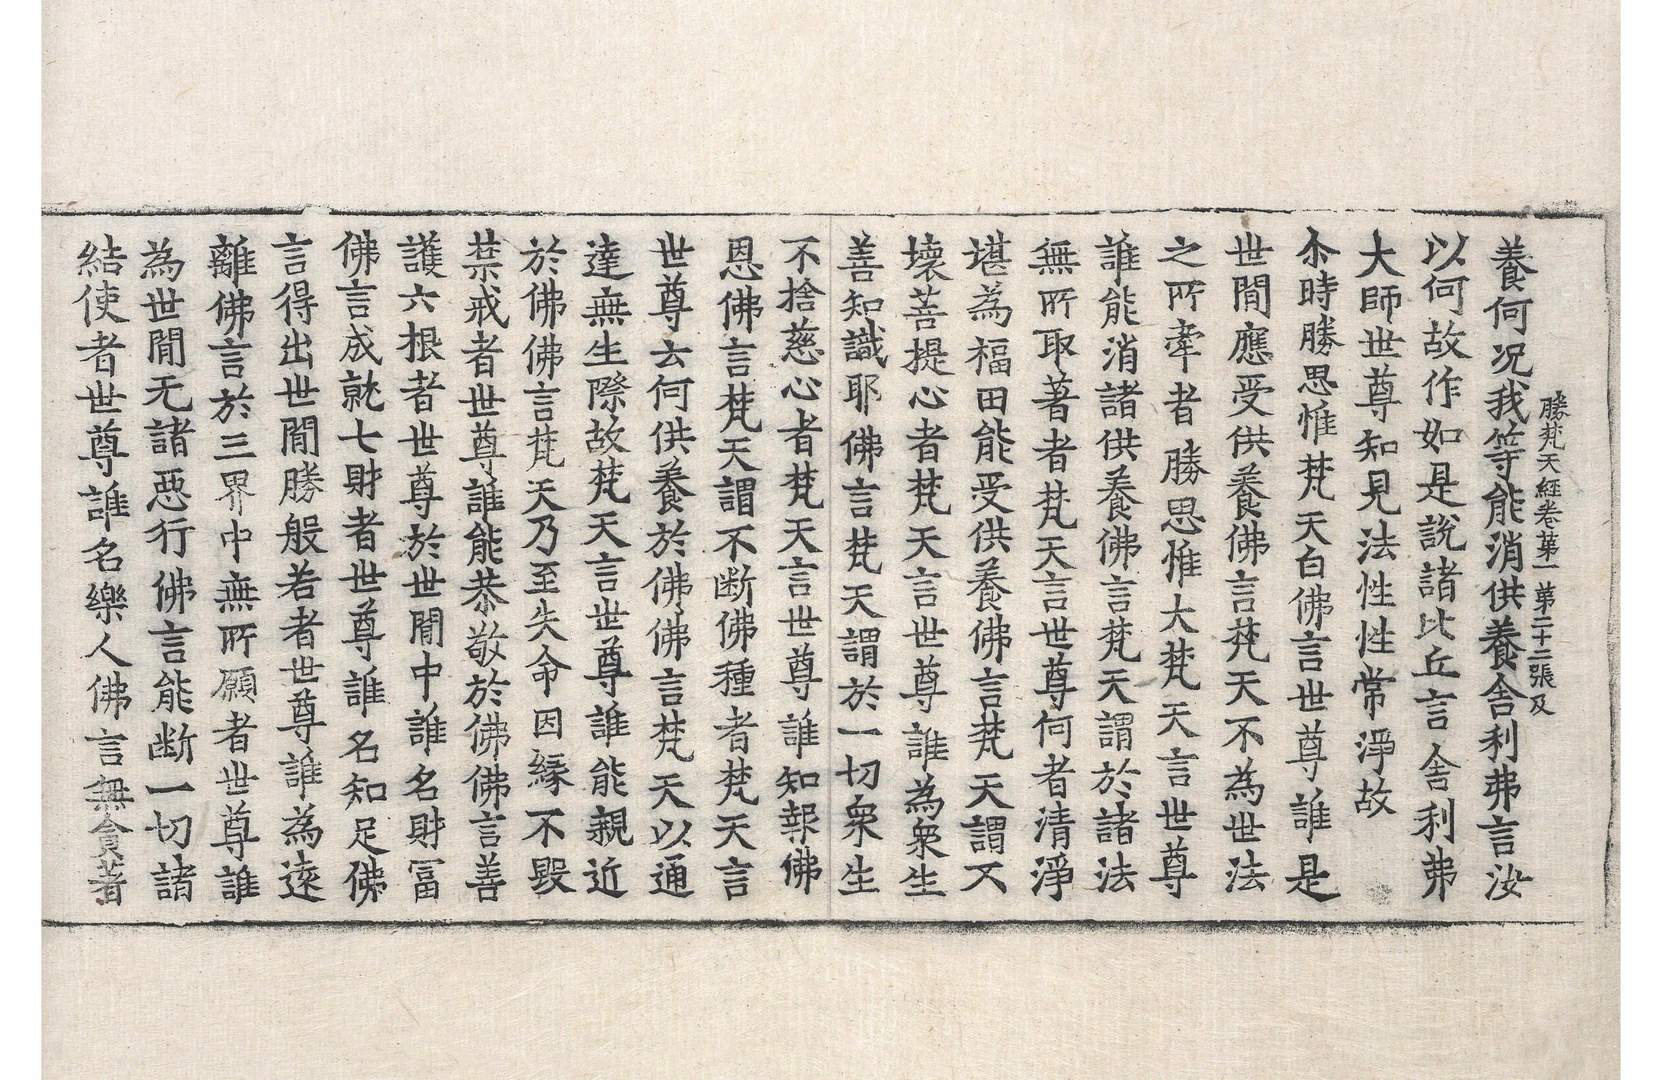 勝梵天經卷第一 第二十二張 及
養何況我等能消供養舍利弗言汝
以何故作如是說諸比丘言舍利弗
大師世尊知見法性性常淨故
尒時勝思惟梵天白佛言世尊誰是
世間應受供養佛言梵天不為世法
之所牽者勝思惟大梵天言世尊
誰能消諸供養佛言梵天謂於諸法
無所取著者梵天言世尊何者清淨
堪為福田能受供養佛言梵天謂不
壞菩提心者梵天言世尊誰為衆生
善知識耶佛言梵天謂於一切衆生
不捨慈心者梵天言世尊誰知報佛
恩佛言梵天謂不断佛種者梵天言
世尊云何供養於佛佛言梵天以通
達無生際故梵天言世尊誰能親近
於佛佛言梵天乃至失命因緣不毀
禁戒者世尊誰能恭敬於佛佛言善
護六根者世尊於世間中誰名財冨
佛言成就七財者世尊誰名知足佛
言得出世間勝般若者世尊誰為遠
離佛言於三界中無所願者世尊誰
為世間无諸惡行佛言能断一切諸
結使者世尊誰名樂人佛言無貪著